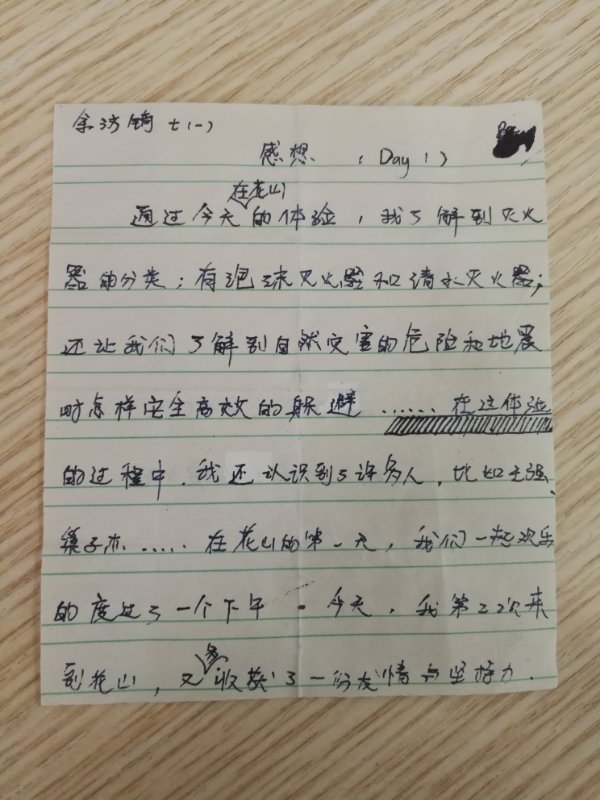 余 琦 七(一)
感想 (Day 1)
在花山
通过今天的体验，我了解到灭火
器的分类：有泡沫灭火器和清水灭火器；
还让我们了解到自然灾害的危险和地震
时怎样安全高效的躲避……在这体验
的过程中，我还认识到了许多人，比如王强、
……在花山的第一天，我们一起欢乐
的度过了一个下午。今天，我第22次来
到花山，又多收获了一份友情与坚持力.